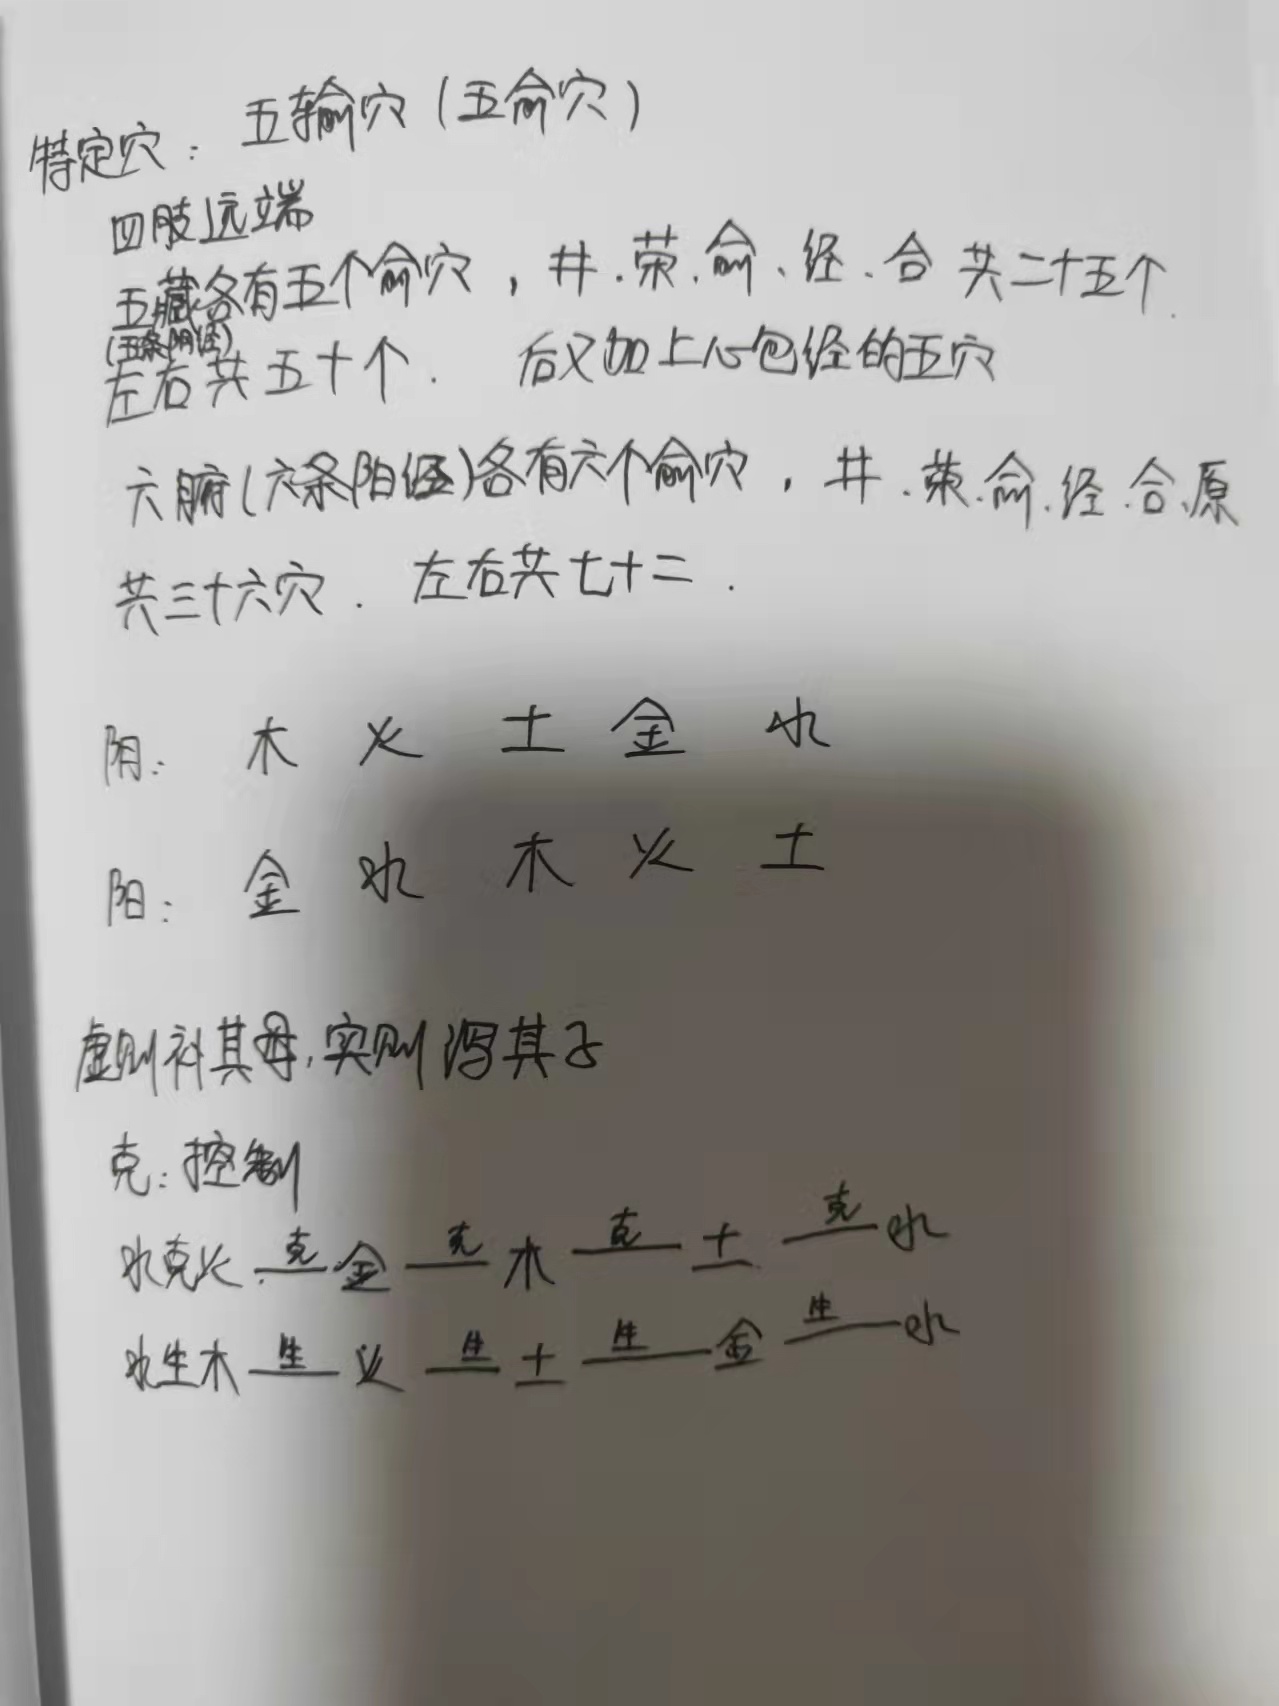 特定穴：五输穴（五俞穴）
四肢远端
五藏各有五个俞穴，井.荣.俞、经.合 共二十五个.
（五条阴经）
左右共五十个. 后又加上心包经的五穴
六腑（六条阳经）各有六个俞穴，井.荣.俞.经.合、原
共三十六穴. 左右共七十二.
阴：木 火 土 金 水
阳：金 水 木 火 土
虚则补其母，实则泻其子
克：控制
水克火 克 金 克 木 克 土 克 水
水生木 生 火 生 土 生 金 生 水